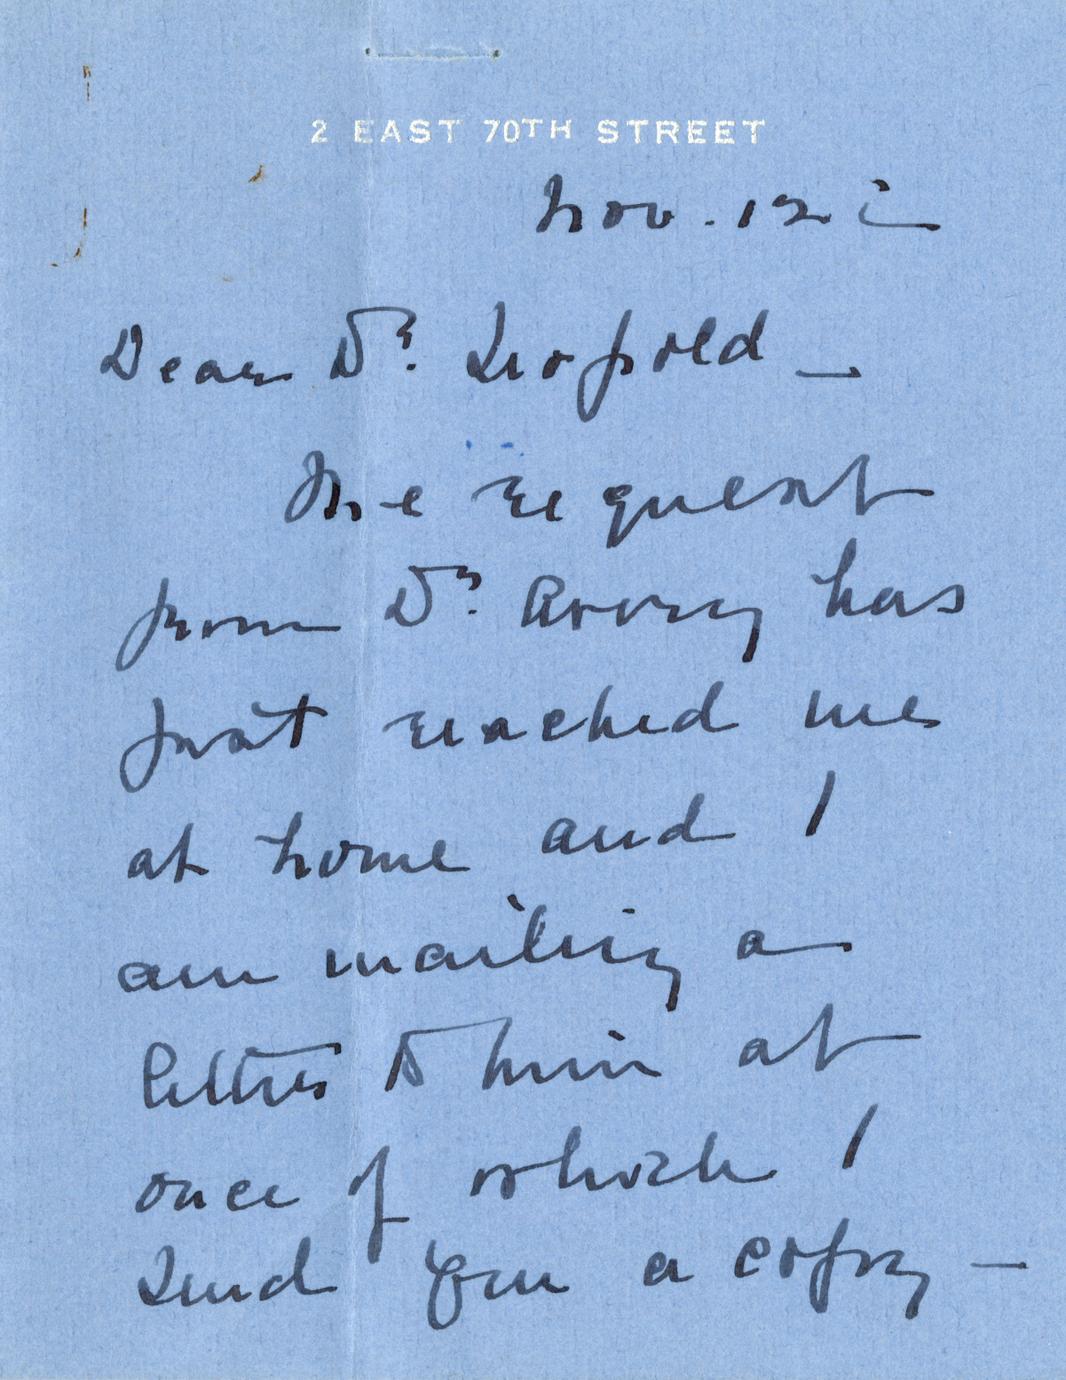 2 EAST 70TH STREET
Nov. 12
Dear Dr. Leopold —
The request
from Dr. Avery has
just reached me
at home and I
am mailing a
letter to him at
once of which I
send you a copy —